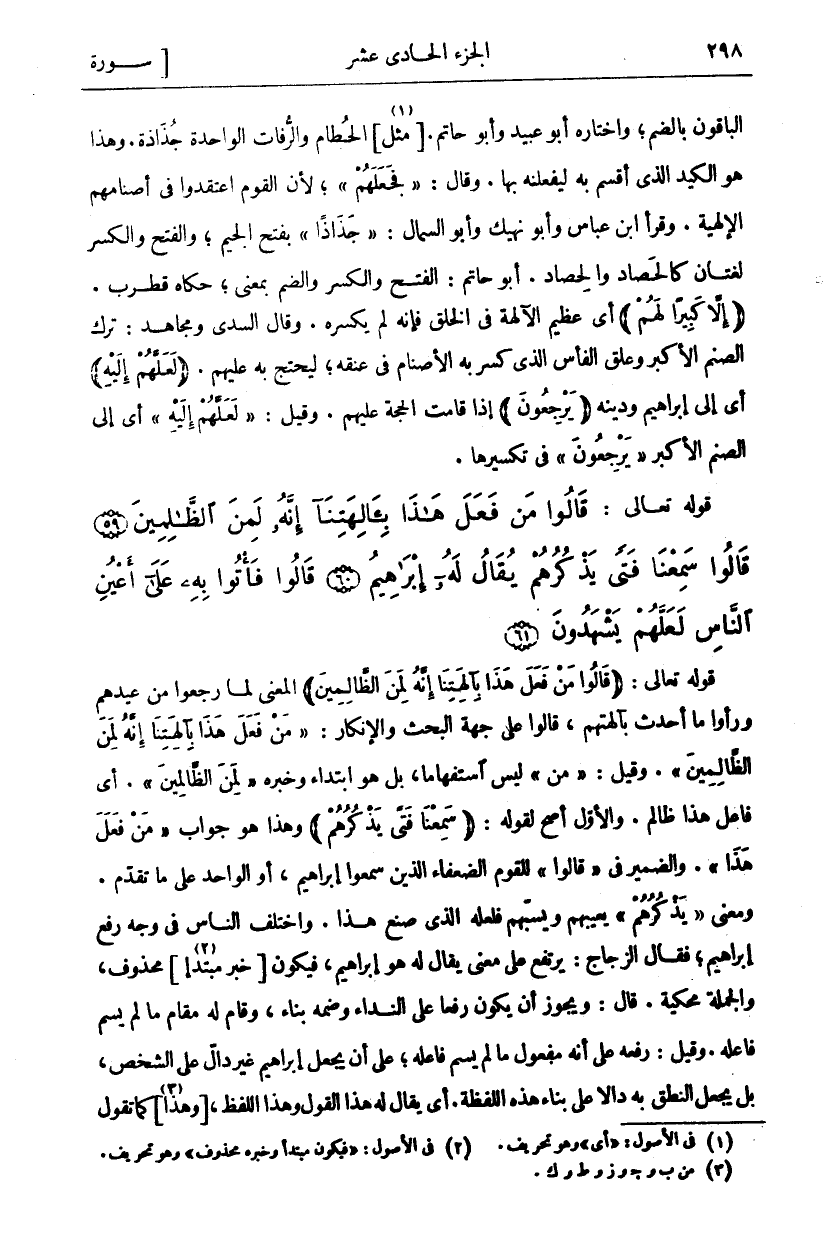 ٢٩٨ الجزء الحادى عشر [ ســورة
الباقون بالضم؛ واختاره أبو عبيد وأبو حاتم. [مثل](١) الحُطام والرُّفات الواحدة جُذَاذة. وهذا
هو الكيد الذى أقسم به ليفعلنه بها . وقال : « فَجَعَلَهُمْ » ؛ لأن القوم اعتقدوا فى أصنامهم
الإلهية . وقرأ ابن عباس وأبو نهيك وأبو السمال : « جَذَاذًا » بفتح الجيم ؛ والفتح والكسر
لغتـان كالحَصاد والحِصاد . أبو حاتم : الفتـح والكسر والضم بمعنى ؛ حكاه قطـرب .
﴿ إِلَّا كَبِيرًا لَهُمْ ﴾ أى عظيم الآلهة فى الخلق فإنه لم يكسره . وقال السدى ومجاهـد : ترك
الصنم الأكبر وعلق الفأس الذى كسر به الأصنام فى عنقه؛ ليحتج به عليهم . ﴿ لَعَلَّهُمْ إِلَيْهِ ﴾
أى إلى إبراهيم ودينه ﴿ يَرْجِعُونَ ﴾ إذا قامت الحجة عليهم . وقيل : « لَعَلَّهُمْ إِلَيْهِ » أى إلى
الصنم الأكبر « يَرْجِعُونَ » فى تكسيرها .
قوله تعـالى : قَالُوا مَن فَعَلَ هَٰذَا بِـَٔالِهَتِنَآ إِنَّهُۥ لَمِنَ ٱلظَّٰلِمِينَ ﴿٥٩﴾
قَالُوا سَمِعْنَا فَتًى يَذْكُرُهُمْ يُقَالُ لَهُۥٓ إِبْرَٰهِيمُ ﴿٦٠﴾ قَالُوا فَأْتُوا بِهِۦ عَلَىٰٓ أَعْيُنِ
ٱلنَّاسِ لَعَلَّهُمْ يَشْهَدُونَ ﴿٦١﴾
قوله تعالى : ﴿قَالُوا مَنْ فَعَلَ هَذَا بِآلِهَتِنَا إِنَّهُ لَمِنَ الظَّالِمِينَ﴾ المعنى لمـا رجعوا من عيدهم
ورأوا ما أحدث بآلهتهم ، قالوا على جهة البحث والإنكار : « مَنْ فَعَلَ هَذَا بِآلِهَتِنَا إِنَّهُ لَمِنَ
الظَّالِمِينَ » . وقيل : « من » ليس ٱستفهاما، بل هو ابتداء وخبره « لَمِنَ الظَّالِمِينَ » . أى
فاعل هذا ظالم . والأوّل أصح لقوله : ﴿ سَمِعْنَا فَتًى يَذْكُرُهُمْ ﴾ وهذا هو جواب « مَنْ فَعَلَ
هَذَا » . والضمير فى « قالوا » للقوم الضعفاء الذين سمعوا إبراهيم ، أو الواحد على ما تقدّم .
ومعنى « يَذْكُرُهُمْ » يعيبهم ويسبّهم فلعله الذى صنع هـذا . واختلف النـاس فى وجه رفع
إبراهيم؛ فقـال الزجاج : يرتفع على معنى يقال له هو إبراهيم، فيكون [ خبر مبتدإ ](٢) محذوف،
والجملة محكية . قال : ويجوز أن يكون رفعا على النـداء وضمه بناء ، وقام له مقام ما لم يسم
فاعله . وقيل : رفعه على أنه مفعول ما لم يسم فاعله ؛ على أن يجعل إبراهيم غير دالّ على الشخص،
بل يجعل النطق به دالا على بناء هذه اللفظة. أى يقال له هذا القول وهذا اللفظ، [وهذا](٣) كما تقول
(١) فى الأصول: «أى» وهو تحريف. (٢) فى الأصول: «فيكون مبتدأ وخبره محذوف» وهو تحريف.
(٣) من ب و جـ و ز و ط و ك .